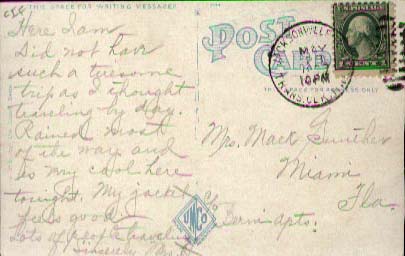 THIS SPACE FOR WRITING MESSAGES
POST
CARD
THIS SPACE FOR ADDRESS ONLY
JACKSONVILLE
MAY
10 PM
Here I am
Did not have
such a tiresome
trip as I thought
traveling by day.
Rained most
of the way and
is very cool here
tonight. My jacket
feels good
Lots of people traveling
Sincerely
Mrs. Mack Gunther
Miami
Fla.
c/o
Apts.